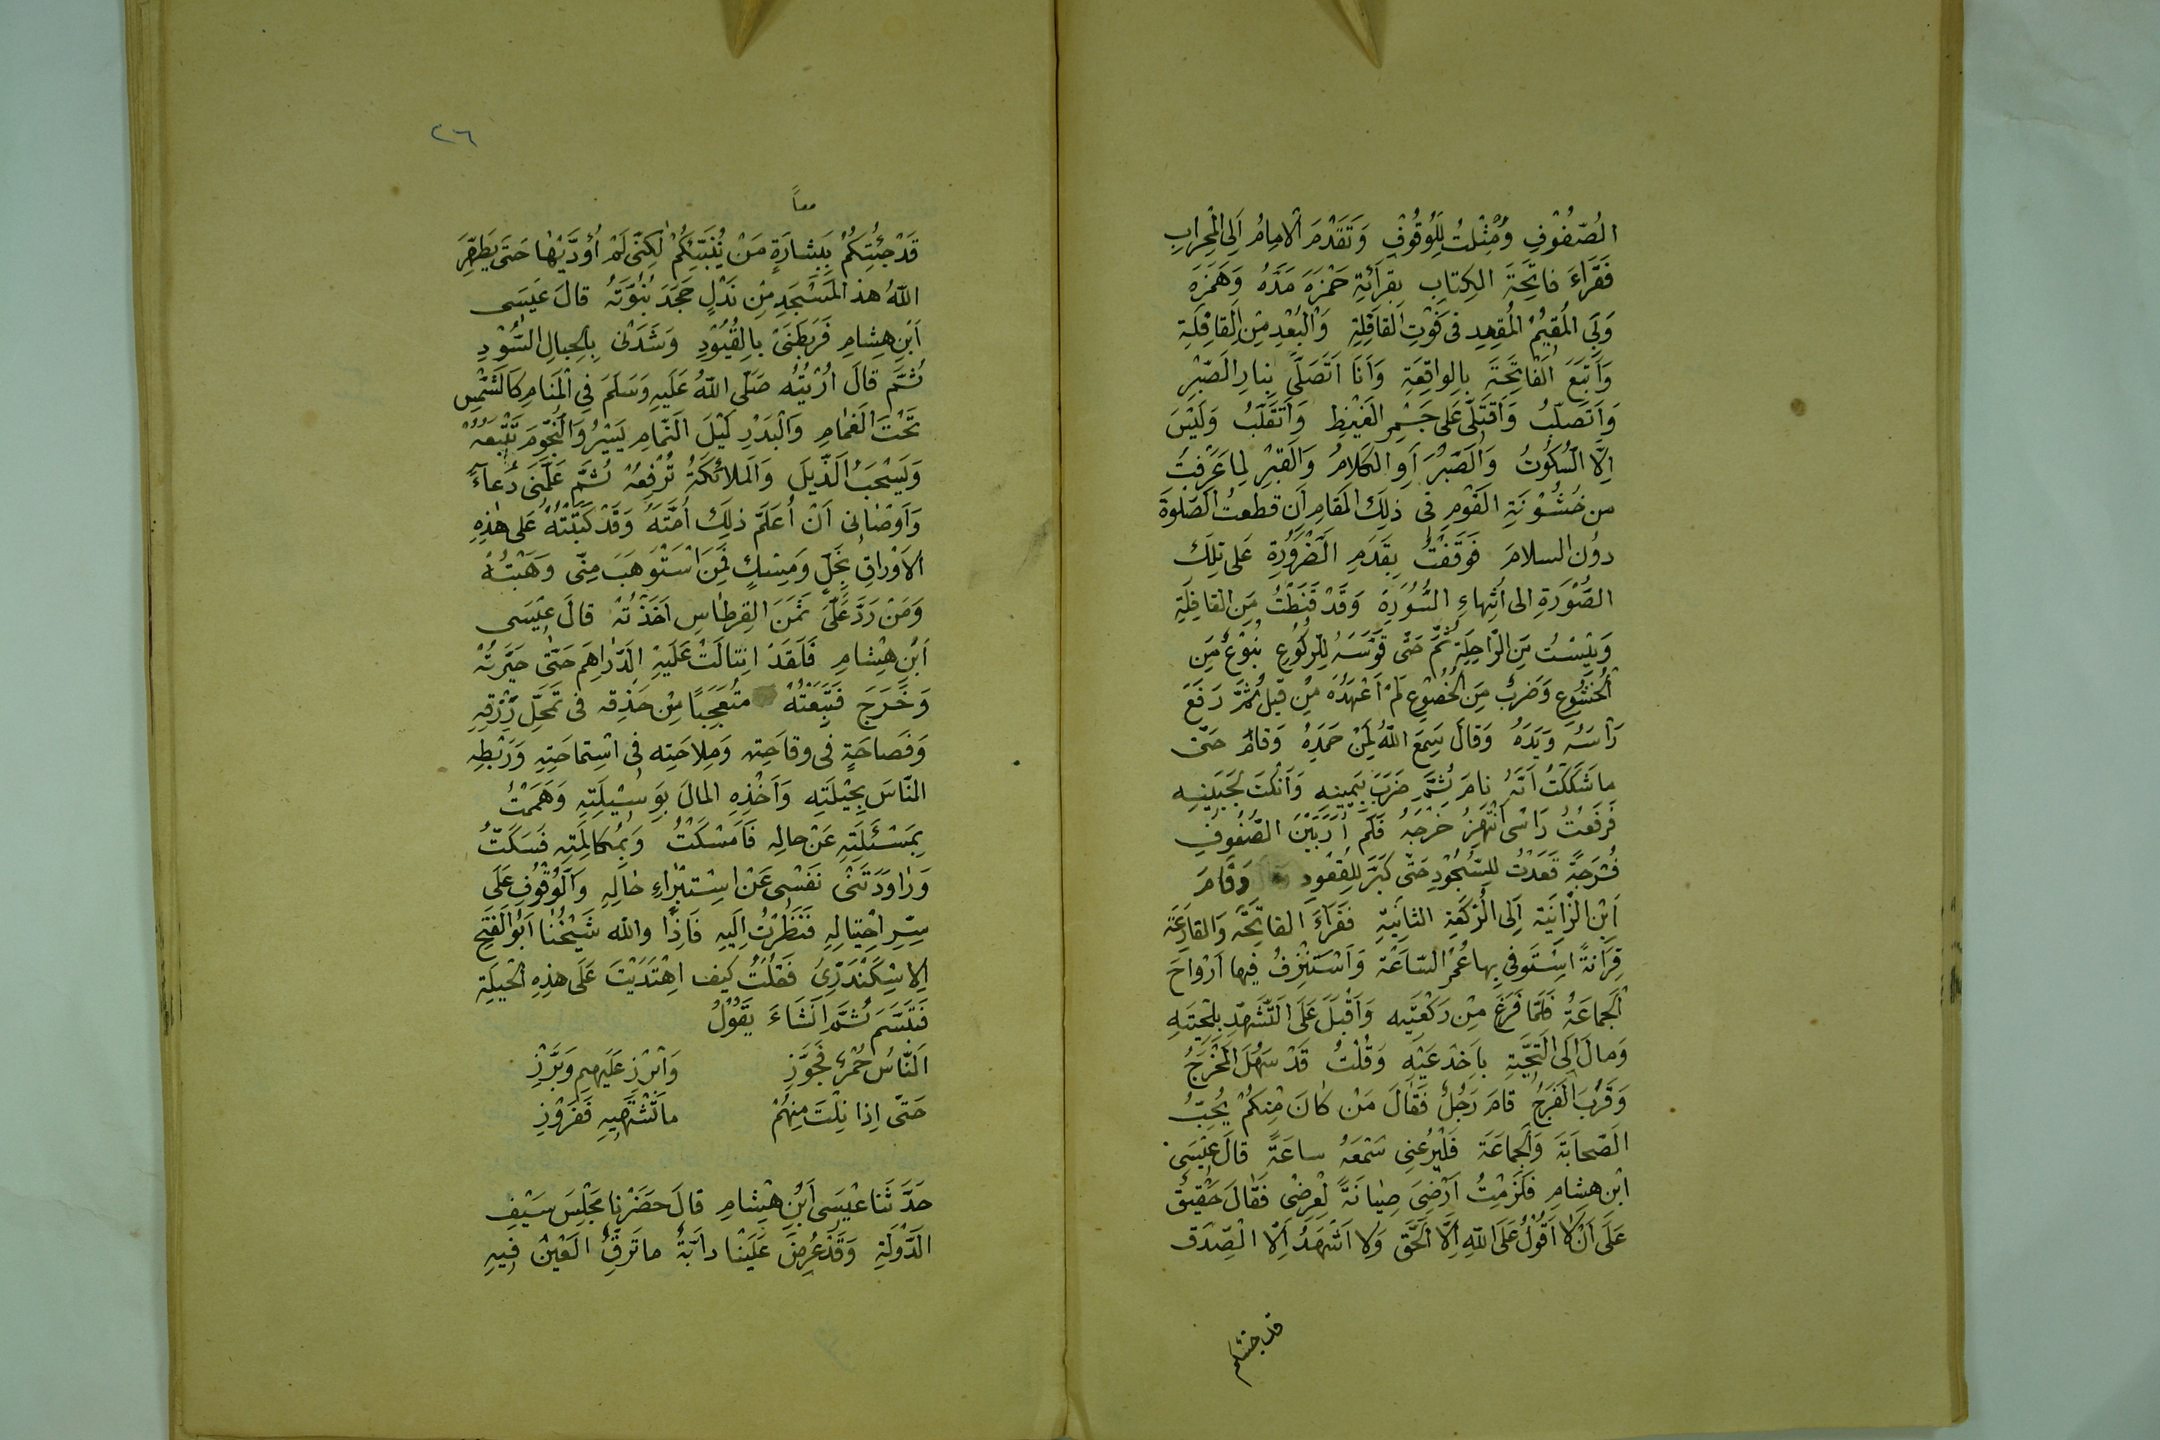 الصُّفُوْفِ وَمُثِّلتُ لِلْوُقُوْفِ وَتَقَدَّمَ الْاِمامُ اِلَى الْمِحْرَابِ
فَقَرَاءَ فاتِحَةَ الكِتابِ بِقِرَأئَةِ حَمْزَةَ مَدَّهُ وَهَمْزَهِ
وَبِىَ المُقِيْمُ المُقْعِدِ فى فَوْتِ القافِلَةِ وَالْبُعْدِ مِنَ القافِلَةِ
وَاَتبَعَ الفَاتِحَةَ بِالواقِعَةِ وَاَنَا اَتَصَلَّى بِنارِ الصَّبْرِ
وَاَتَصَلَّبُ وَاَتَقَلّى عَلى جَمْرِ الغَيْظِ وَاَتَقَلَّبُ وَلَيْسَ
اِلَّا السُّكُوْتُ وَالصَّبْرُ اَوِ الكَلامُ وَالقَبْرِ لِمَا عَرَفتُ
من خُشُوْنَةِ القَوْمِ فى ذلِكَ المَقامِ اَن قطعتُ الصَّلوةَ
دوُن السلامَ فَوَقَفْتُ بِقَدَمِ الضَّرُوْرَةِ عَلى تِلكَ
الصُّوْرَةِ الى اَنْتِهاءِ السُّوْرَةِ وَقَدْ قَنَطْتُ مِنَ القافِلَةِ
وَيَئِسْتُ مِنَ الرَّاحِلَةِ ثُمَّ حَنّى قَوْسَهُ لِلرُّكُوْعِ بِنُوْعٍ مِنَ
الْخُشُوْعِ وَضَربٍ مِنَ الْخُضُوْعِ لَمْ اَعْهَدُهُ مِنْ قبلُ ثُمَّ رَفَعَ
رَأسَهُ وَيَدَهُ وَقالَ سَمِعَ اللّٰهُ لِمَنْ حَمِدَهُ وَقامَ حَتّى
ما شَكَكتُ اَنَّهُ نامَ ثُمَّ ضَرَبَ بِيَمِينِهِ وَاَنْكَبَّ لِجَبِينِهِ
فَرَفَعْتُ رَاْسى اَنْتَهِزُ خَرْجَهُ فَلَمْ اُرَ بَيْنَ الصُّفُوْفِ
فُرْجَةً فَعَدْتُ لِلسُّجُوْدِ حَتّى كَبَّرَ لِلْقُعُوْدِ وَقامَ
اَبْنُ الزَّانِيَةِ اِلَى الرَّكْعَةِ الثانِيَةِ فَقَرَاءَ الفاتِحَةَ وَالقَارِعَةَ
قِرَاَئةً اسْتَوفى بِها عُمْرَ السّاعَةِ وَاَسْتَنْزَفُ فيها اَرْوَاحَ
الْجَماعَةُ فَلَمَّا فَرَغَ مِنْ رَكْعَتَيهِ وَاَقْبَلَ عَلَى التَّشَهُّدِ بِلَحْيَتِهِ
وَمالَ اِلَى التَّحِيَّةِ بِاَخْدَعَيْهِ وَقُلْتُ قَدْ سَهُلَ المَخْرَجُ
وَقَرُبَ الفَرَجُ قامَ رَجُلٌ فَقالَ مَنْ كانَ مِنْكُمْ يُحِبُّ
الصَّحَابَةَ وَالجَماعَةَ فَلْيُرْعِنى سَمْعَهُ ساعَةً قالَ عِيْسَى
ابْن هِشامِ فَلَزِمْتُ اَرْضِىَ صِيانَةً لِعِرْضى فَقالَ حَقِيْقٌ
عَلَى اَنْ لا اَقُوْلُ عَلَى اللّٰهِ اِلَّا الحَقَّ وَلا اَشْهَدُ اِلّا الصِّدْقَ
قد جئتكم
٢٦
معاً
قَدْ جِئْتُكُمْ بِبَشارَةٍ مِنْ نَبِيِّكُمْ لٰكِنّى لَمْ اُوَدِّيْها حَتّى يُطَهِّرَ
اللّٰهُ هذ المَسْجِدِ مِنْ نَذْلٍ جَحَدَ نُبُوَّتَهُ قالَ عِيسَى
اَبْنِ هِشامِ فَرَبَطَنى بِالقُيُوْدِ وَشَدَنى بِالْحِبالِ السُّوْدِ
ثُمَّ قالَ اُرْيُتُه صَلَّى اللّٰهُ عَلَيهِ وَسَلَمَ فى الْمَنامِ كَالشَّمْسِ
تَحْتَ الغَمامِ وَالْبَدْرِ لَيْلَ التَّمامِ يَسيْرُ وَالنُجُّوْمَ تَتْبَعُهُ
وَيَسْحَبُ الذَّيلَ وَالمَلائكَةُ تُرْفِعُهُ ثُمَّ عَلَّمَنى دُعآءً
وَاَوْصٰانى اَنْ اُعَلِّمَ ذلِكَ اُمَّتَهُ وَقَدْ كَتَبْتُهُ عَلى هٰذِهِ
الاَوْراقِ بِخَلٍّ وَمِسْكٍ فَمَنِ اسْتَوْهَبَ مِنّى وَهَبْتُهُ
وَمَنْ رَدَّ عَلَىَّ ثَمَنَ القِرطاسِ اَخَذْتُهُ قالَ عِيْسَى
اَبْنِ هِشامِ فَلَقَدْ انتالَتْ عَلَيْهِ الدَّراهِمَ حَتّى حَيَّرَتْهُ
وَخَرَجَ فَتَبِعْتُهُ مُتَعَجِّبًا مِنْ حَذِقِه فى تَمَحُّلِ رِزْقِهِ
وَفَصاحَةٍ فى وقاحَتِه وَمِلاحَتِه فى اسْتِماحَتِهِ وَرَبْطِهِ
النّاسَ بِحِيْلَتِه وَاَخْذِهِ المالَ بِوَسيْلَتِهِ وَهَمَمْتُ
بِمَسْئَلَتِهِ عَنْ حالِه فَاَمْسَكْتُ وَبِمُكالِمَتِهِ فَسَكَتُّ
وَرٰاوَدَتَنى نَفْسى عَنْ اسْتِبْراءِ حالِهِ وَالوُقُوْفِ عَلى
سِرِّ احْتِيالِهِ فَنَظَرْتُ اِلَيهِ فَاِذًا واللّٰه شَيْخُنا اَبُوالفَتْحِ
الاِسْكَنْدَرِىُّ فَقُلْتُ كيف اهْتَدَيْتَ عَلَى هذِهِ الْحيلَةِ
فَتَبَسَّمَ ثُمَّ اَنْشاءَ يَقُوْلُ
اَلنّاسُ حُمْرٌ فَجَوِّزِ وَاَبْرُزْ عَلَيهِمِ وَبَرِّزْ
حَتّى اِذا نِلْتَ مِنْهُمْ ماتَشْتَهيهِ فَفَرْوِزِ
حَدَّثَنا عيْسَى اَبْنِ هِشامِ قالَ حضَرْنا مَجْلِسَ سَيْفِ
الدَّوْلَةِ وَقَدْ عُرِضَ عَلَيْنا دابَّةٌ ما تَرِقُّ العَيْنُ فيهِ